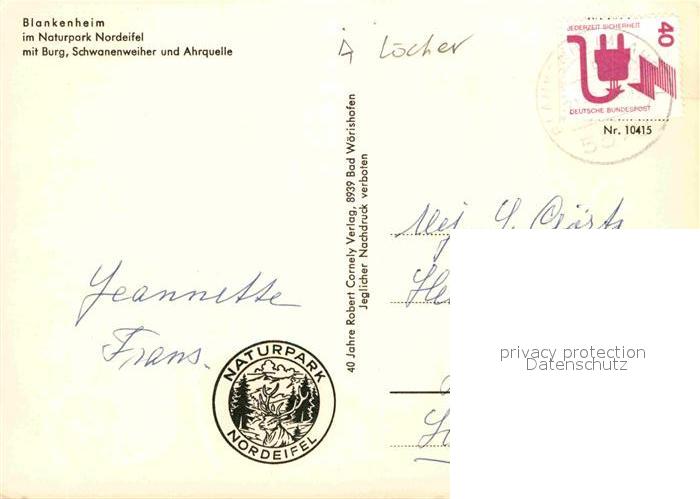 Blankenheim
im Naturpark Nordeifel
mit Burg, Schwanenweiher und Ahrquelle
Löcher
JEDERZEIT SICHERHEIT
40
DEUTSCHE BUNDESPOST
Nr. 10415
40 Jahre Robert Cornely Verlag, 8939 Bad Wörishofen
Jeglicher Nachdruck verboten
Mej
Jeannette
Frans.
privacy protection
Datenschutz
NATURPARK
NORDEIFEL